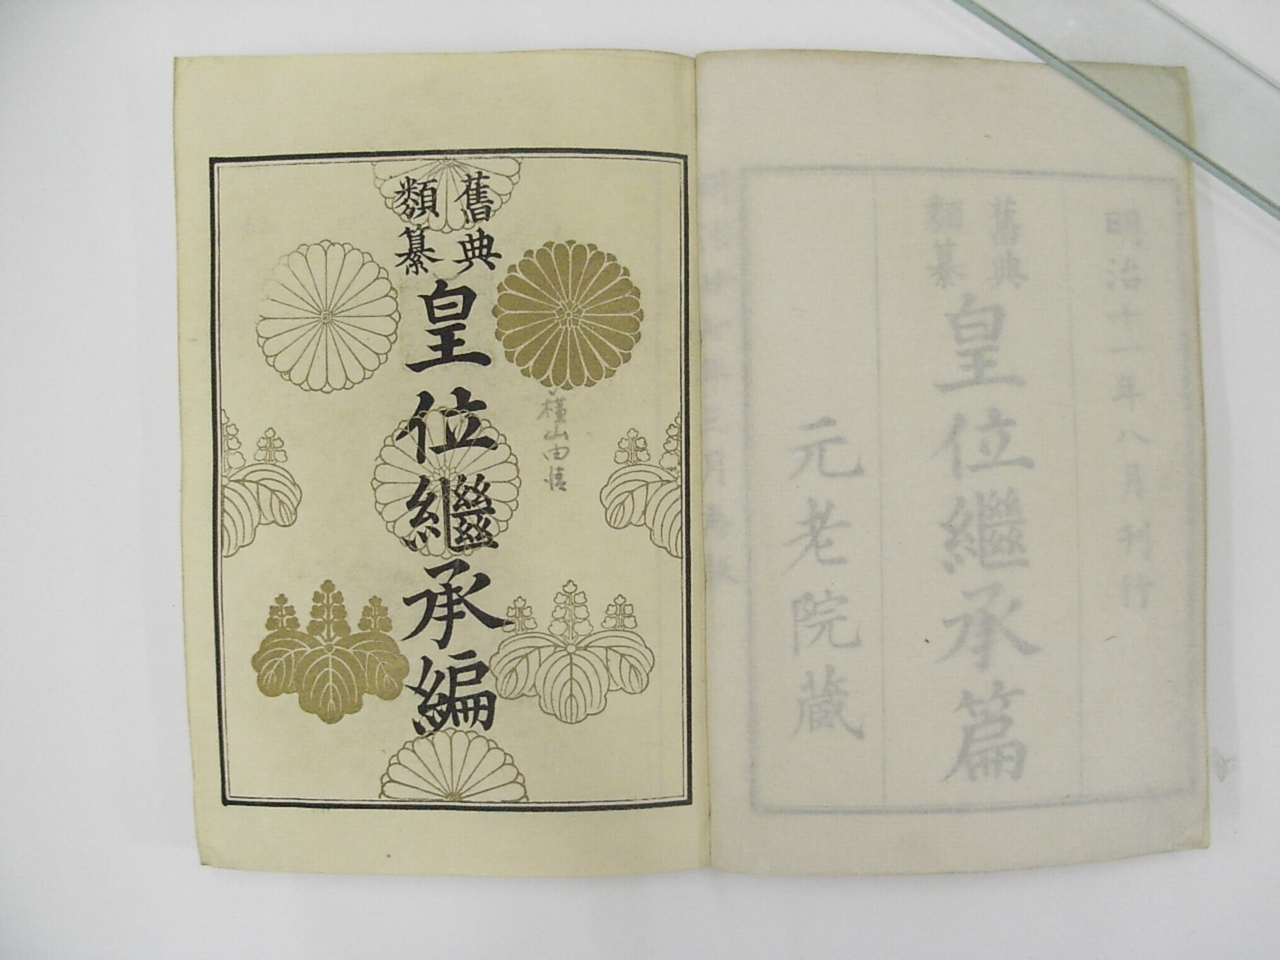 明治十一年八月刊行
舊典
類纂
皇位繼承篇
元老院蔵
舊典
類纂
皇位繼承編